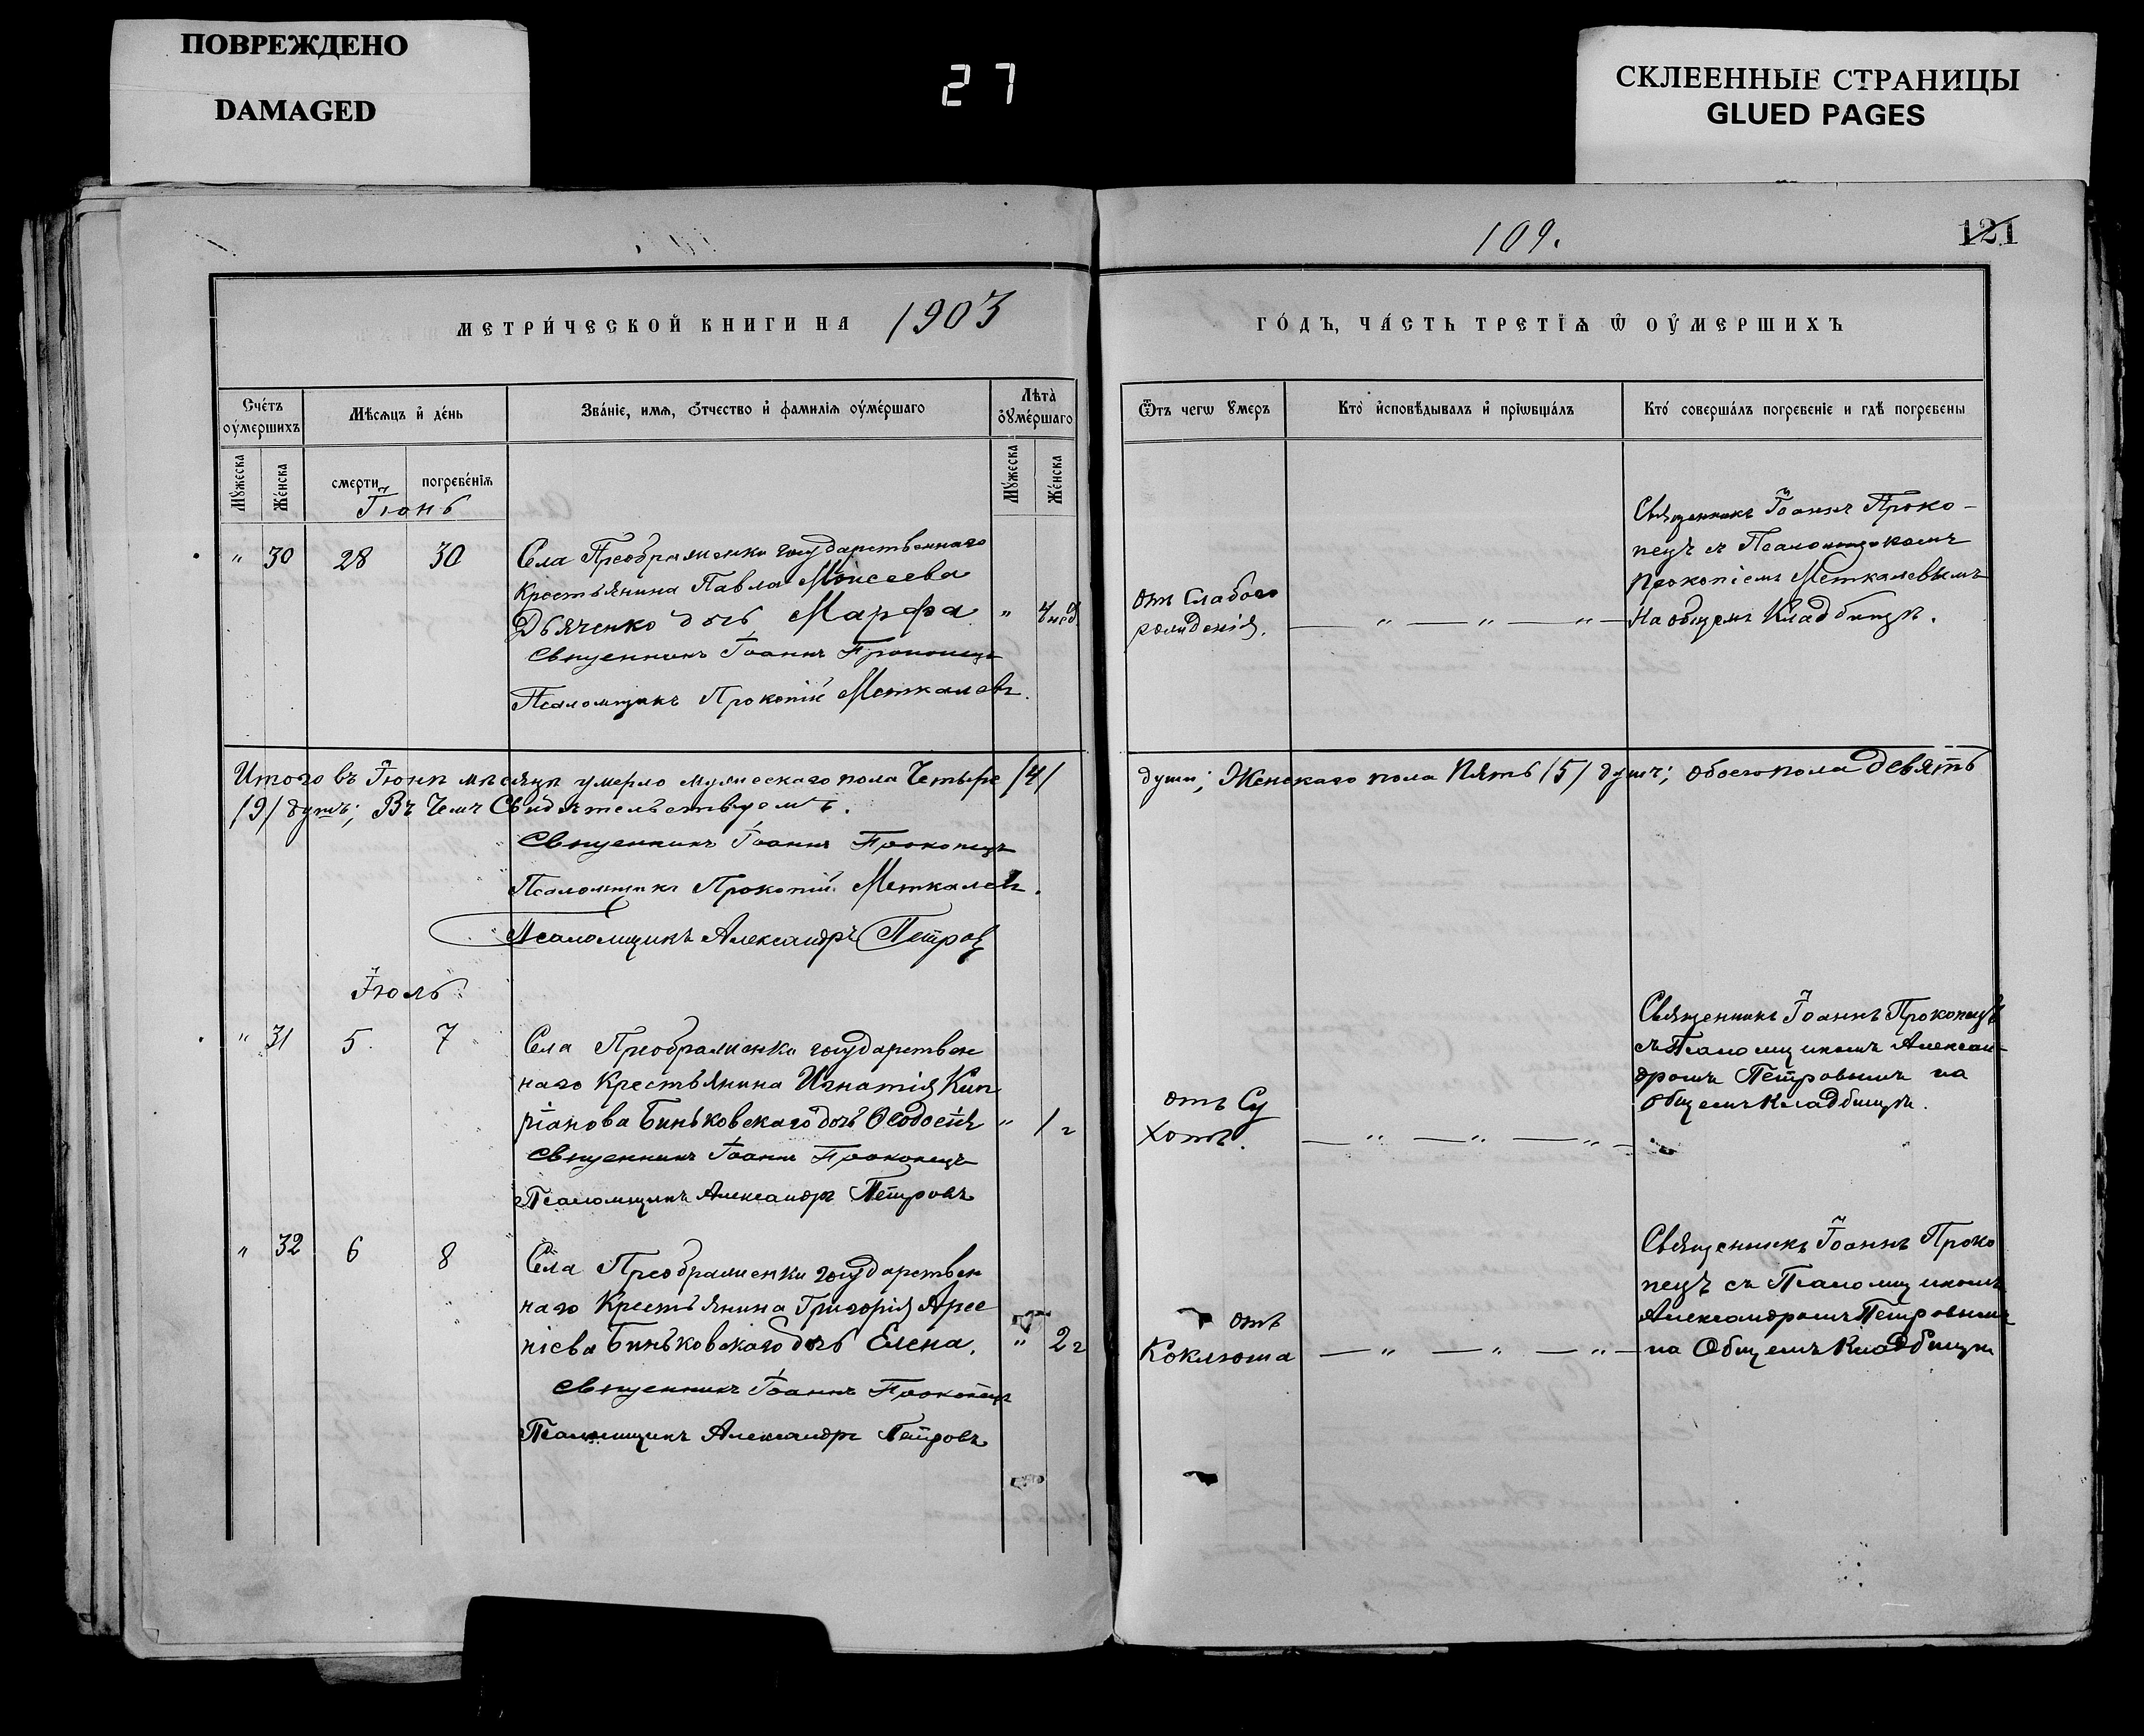 ПОВРЕЖДЕНО
DAMAGED
27
СКЛЕЕННЫЕ СТРАНИЦЫ
GLUED PAGES
109.
121
МЕТРИ́ЧЕСКОЙ КНИГИ НА 1903
ГО́ДЪ, ЧА́СТЬ ТРЕТІѦ Ѿ ОУ҆МЕРШИХЪ
Сче́тъ оу҆ме́ршихъ
Мѣсѧцъ и҆ де́нь
Зва́нїе, имѧ, ѻ҆́тчество и҆ фамилїѧ оу҆ме́ршаго
Лѣта̀ оу҆ме́ршаго
Ѿтъ чегѡ ꙋмеръ
Кто̀ и҆сповѣ́дывалъ и҆ прїѡбща́лъ
Кто́ соверша́лъ погребенїе и гдѣ̀ погребены
Мꙋ́жеска
Же́нска
смерти
погребе́нїѧ
Мꙋ́жеска
Же́нска
Іюнь
" 30 28 30
Села Преображенки государственнаго
Крестьянина Павла Моисеева
Дьяченко дочь Марфа
" 4 нед
Священникъ Іоаннъ Прокопецъ
Псаломщикъ Прокопій Меткалевъ.
отъ Слабого
рожденія.
— " — " — " —
Священникъ Іоаннъ Проко-
пецъ съ Псаломщикомъ
Прокопіемъ Меткалевымъ
На общемъ Кладбищѣ.
Итого въ Іюнѣ мѣсяцѣ умерло мужескаго пола Четыре /4/
души; Женскаго пола Пять /5/ душъ; обоего пола девять
/9/ душъ; Въ Чемъ Свидѣтельствуемъ.
Священникъ Іоаннъ Прокопецъ
Псаломщикъ Прокопій Меткалевъ.
Псаломщикъ Александръ Петровъ
Іюль
" 31 5 7
Села Преображенки государствен
наго Крестьянина Игнатія Кип
ріанова Биньковскаго дочь Ѳеодосія
" 1 г
Священникъ Іоаннъ Прокопецъ
Псаломщикъ Александръ Петровъ
отъ Су
хотъ.
— " — " — " —
Священникъ Іоаннъ Прокопецъ
съ Псаломщикомъ Алексан-
дромъ Петровымъ на
общемъ Кладбищѣ.
" 32 6 8
Села Преображенки государствен
наго Крестьянина Григорія Арсе
ніева Биньковскаго дочь Елена.
" 2 г
Священникъ Іоаннъ Прокопецъ
Псаломщикъ Александръ Петровъ
отъ
Коклюша
— " — " — " —
Священникъ Іоаннъ Проко
пецъ съ Псаломщикомъ
Александромъ Петровымъ
на Общемъ Кладбищѣ